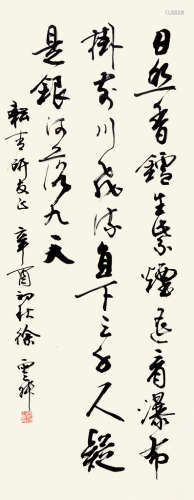 日照香鑪生紫煙遥看瀑布
掛前川飛流直下三千尺疑
是銀河落九天
耘青研友正 辛酉初秋 徐雲叔